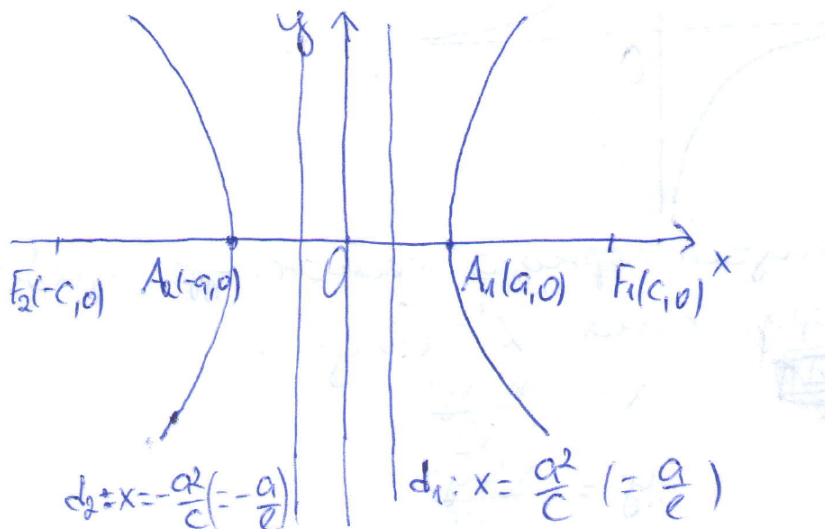 y
F₂(-c,0) A₂(-a,0) O A₁(a,0) F₁(c,0) x
d₂: x = -a²/c (= -a/e) d₁: x = a²/c (= a/e)